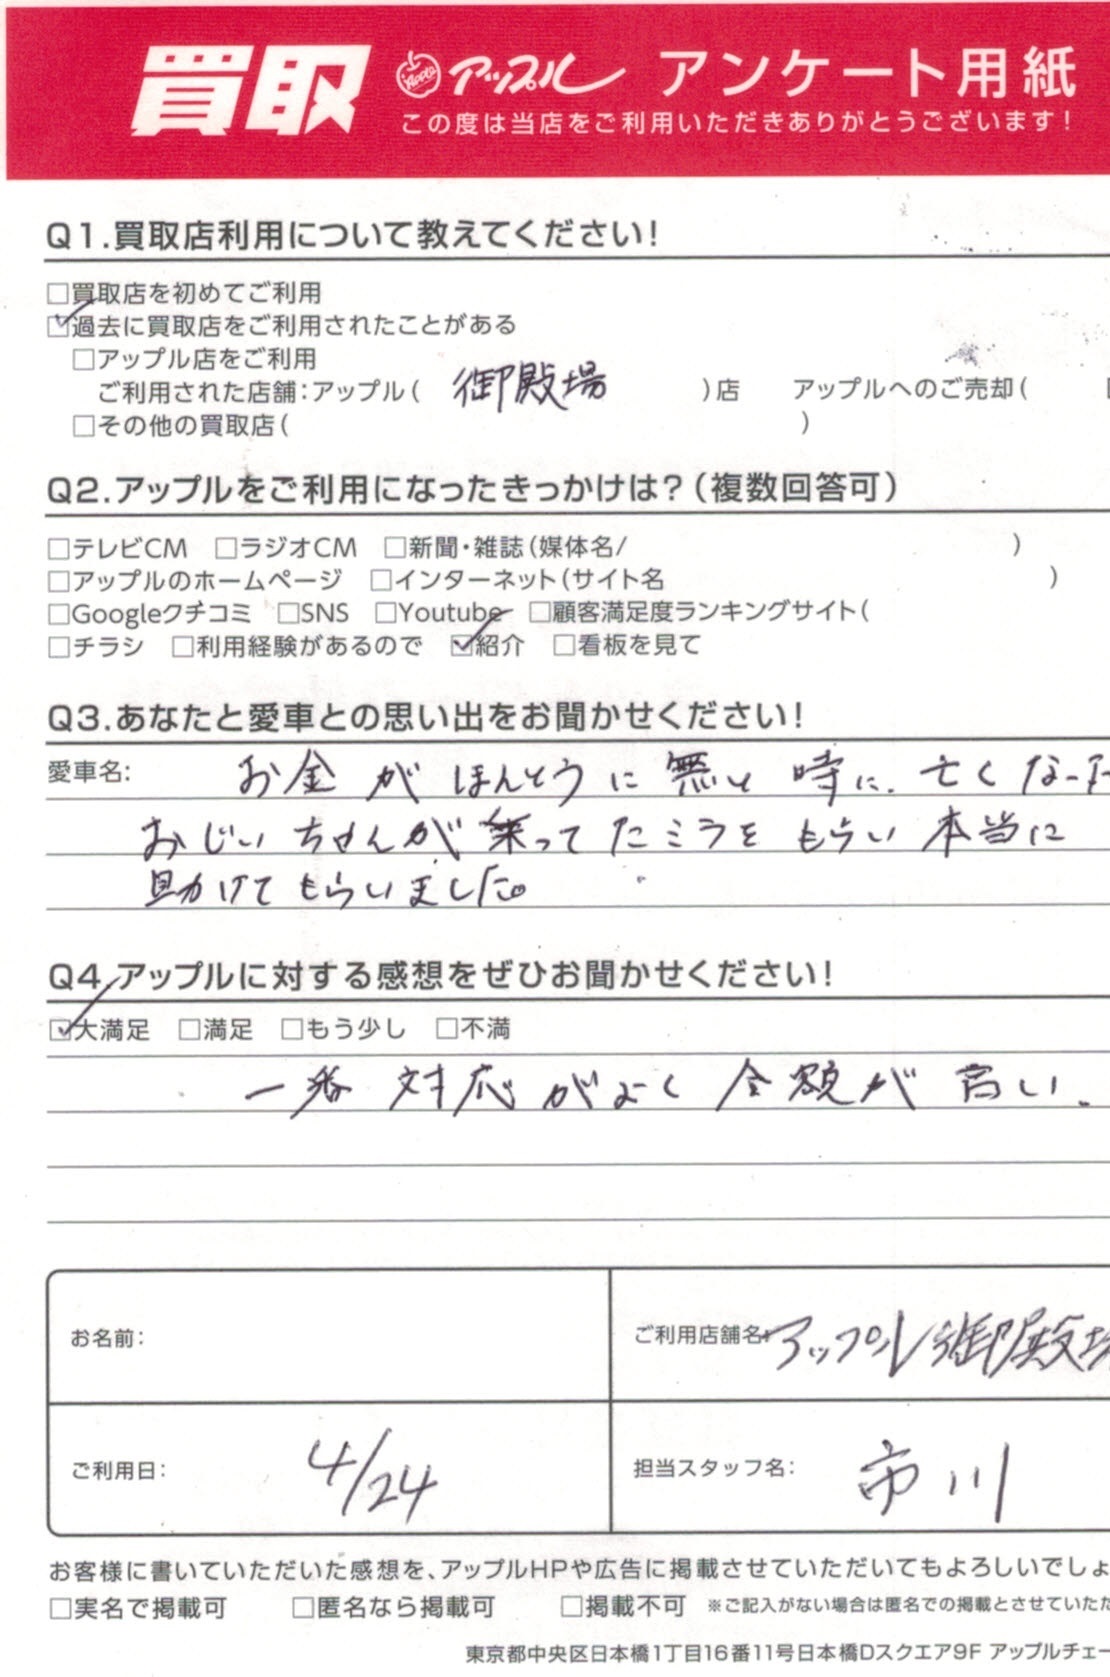 買取 Apple アップル アンケート用紙
この度は当店をご利用いただきありがとうございます!
Q1.買取店利用について教えてください!
□買取店を初めてご利用
☑過去に買取店をご利用されたことがある
□アップル店をご利用
ご利用された店舗:アップル( 御殿場 )店 アップルへのご売却(
□その他の買取店( )
Q2.アップルをご利用になったきっかけは?(複数回答可)
□テレビCM □ラジオCM □新聞・雑誌(媒体名/ )
□アップルのホームページ □インターネット(サイト名 )
□Googleクチコミ □SNS □Youtube □顧客満足度ランキングサイト(
□チラシ □利用経験があるので ☑紹介 □看板を見て
Q3.あなたと愛車との思い出をお聞かせください!
愛車名: お金がほんとうに無い時に、亡くなった
おじいちゃんが乗ってたミラをもらい本当に
助けてもらいました。
Q4.アップルに対する感想をぜひお聞かせください!
☑大満足 □満足 □もう少し □不満
一番対応がよく金額が高い、
お名前:
ご利用店舗名: アップル御殿場
ご利用日: 4/24
担当スタッフ名: 市川
お客様に書いていただいた感想を、アップルHPや広告に掲載させていただいてもよろしいでしょ
□実名で掲載可 □匿名なら掲載可 □掲載不可 ※ご記入がない場合は匿名での掲載とさせていただ
東京都中央区日本橋1丁目16番11号日本橋Dスクエア9F アップルチェー